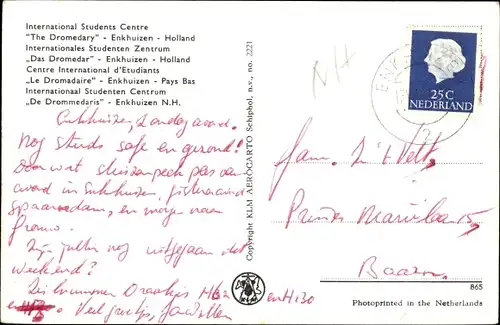 International Students Centre
"The Dromedary" - Enkhuizen - Holland
Internationales Studenten Zentrum
„Das Dromedar" - Enkhuizen - Holland
Centre International d'Etudiants
„Le Dromadaire" - Enkhuizen - Pays Bas
Internationaal Studenten Centrum
„De Drommedaris" - Enkhuizen N.H.
Enkhuizen, Zondagavond.
Nog steeds safe en gezond!
Door wat pas van
avond in Enkhuizen, gisteravond
Spaarndam, en morgen naar
Zijn jullie nog uitgegaan dit
weekend?
Veel groetjes,
Copyright KLM AEROCARTO Schiphol, n.v., no. 2221
N/H
ENK
25C
NEDERLAND
Fam.
Prinses Marielaan 15,
Baarn.
865
Photoprinted in the Netherlands